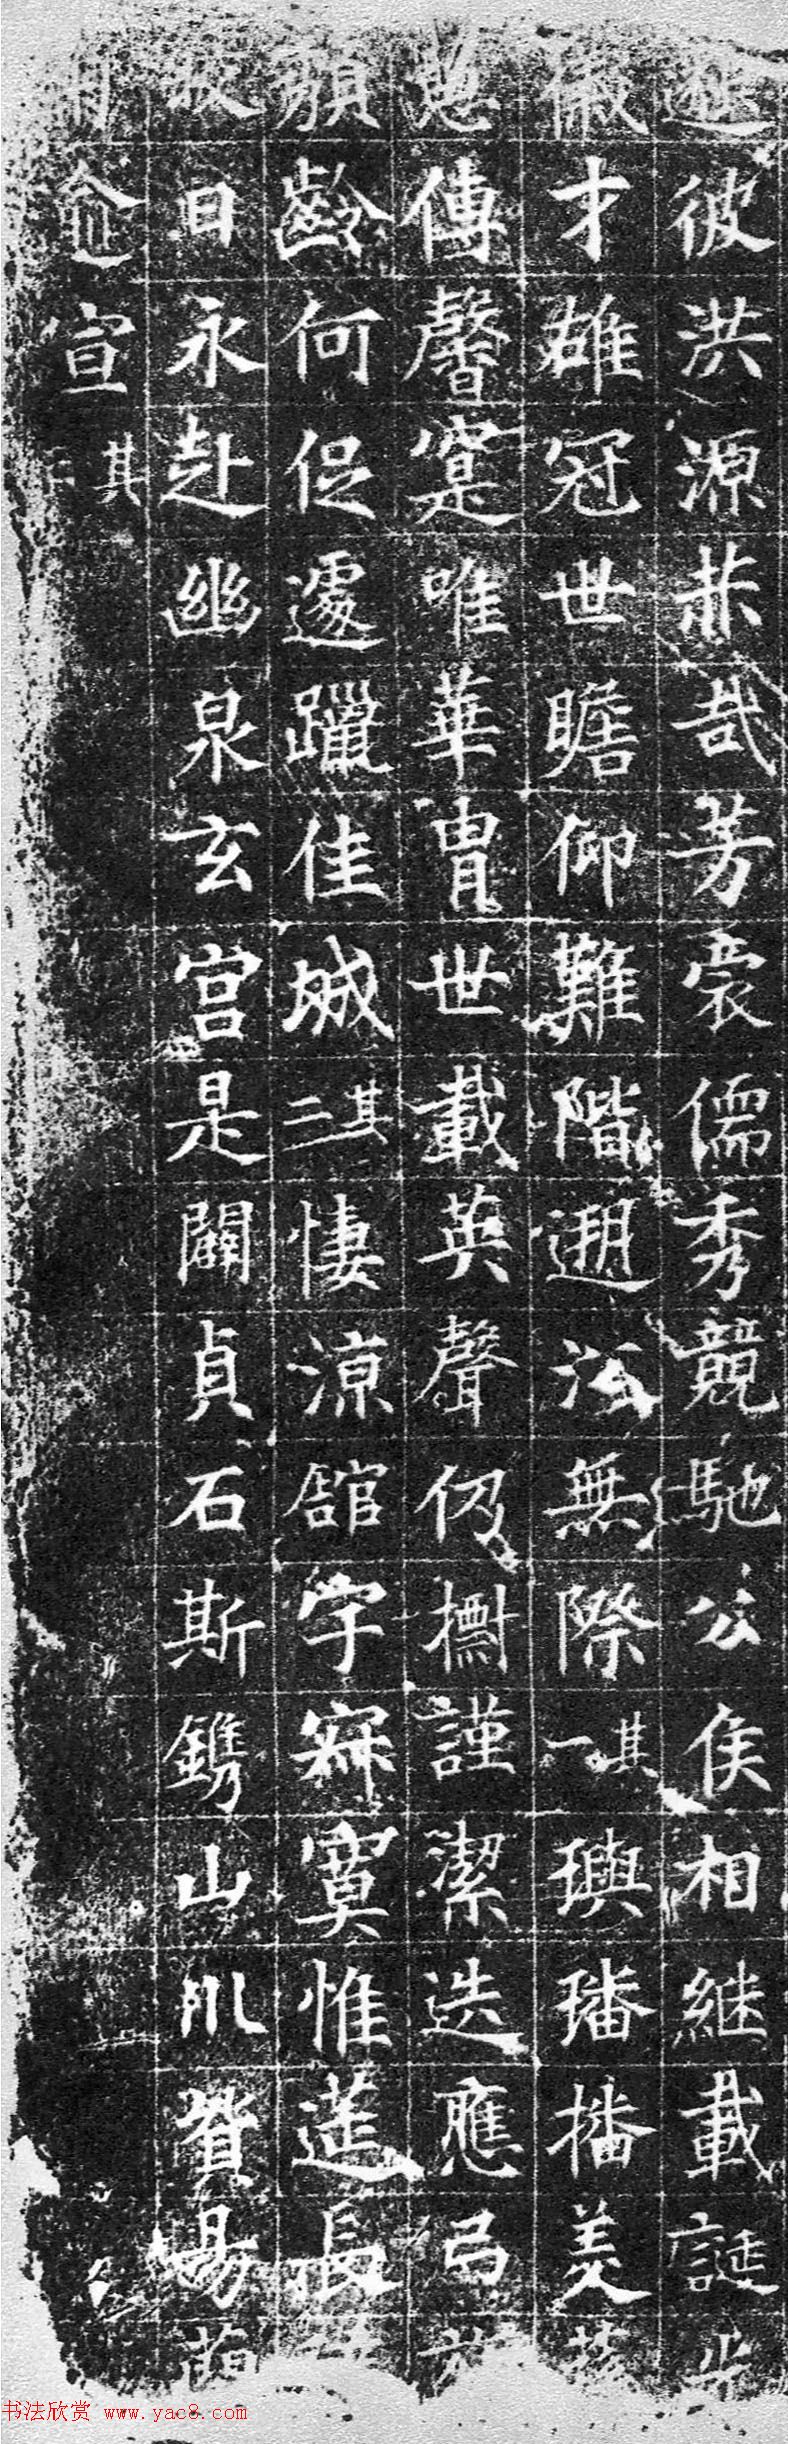 彼洪源恭哉芳裔儒秀競馳公侯相継載誕
徽才雄冠世瞻仰難階遡沿無際其一璵璠播美
傳馨寔唯華胄世載英聲仍擕謹潔迭應弓
頹齡何促遽躐佳城其二悽涼舘宇寂寞惟莚長
日永赴幽泉玄宮是闢貞石斯鐫山川賀易
宣其
书法欣赏 www.yac8.com